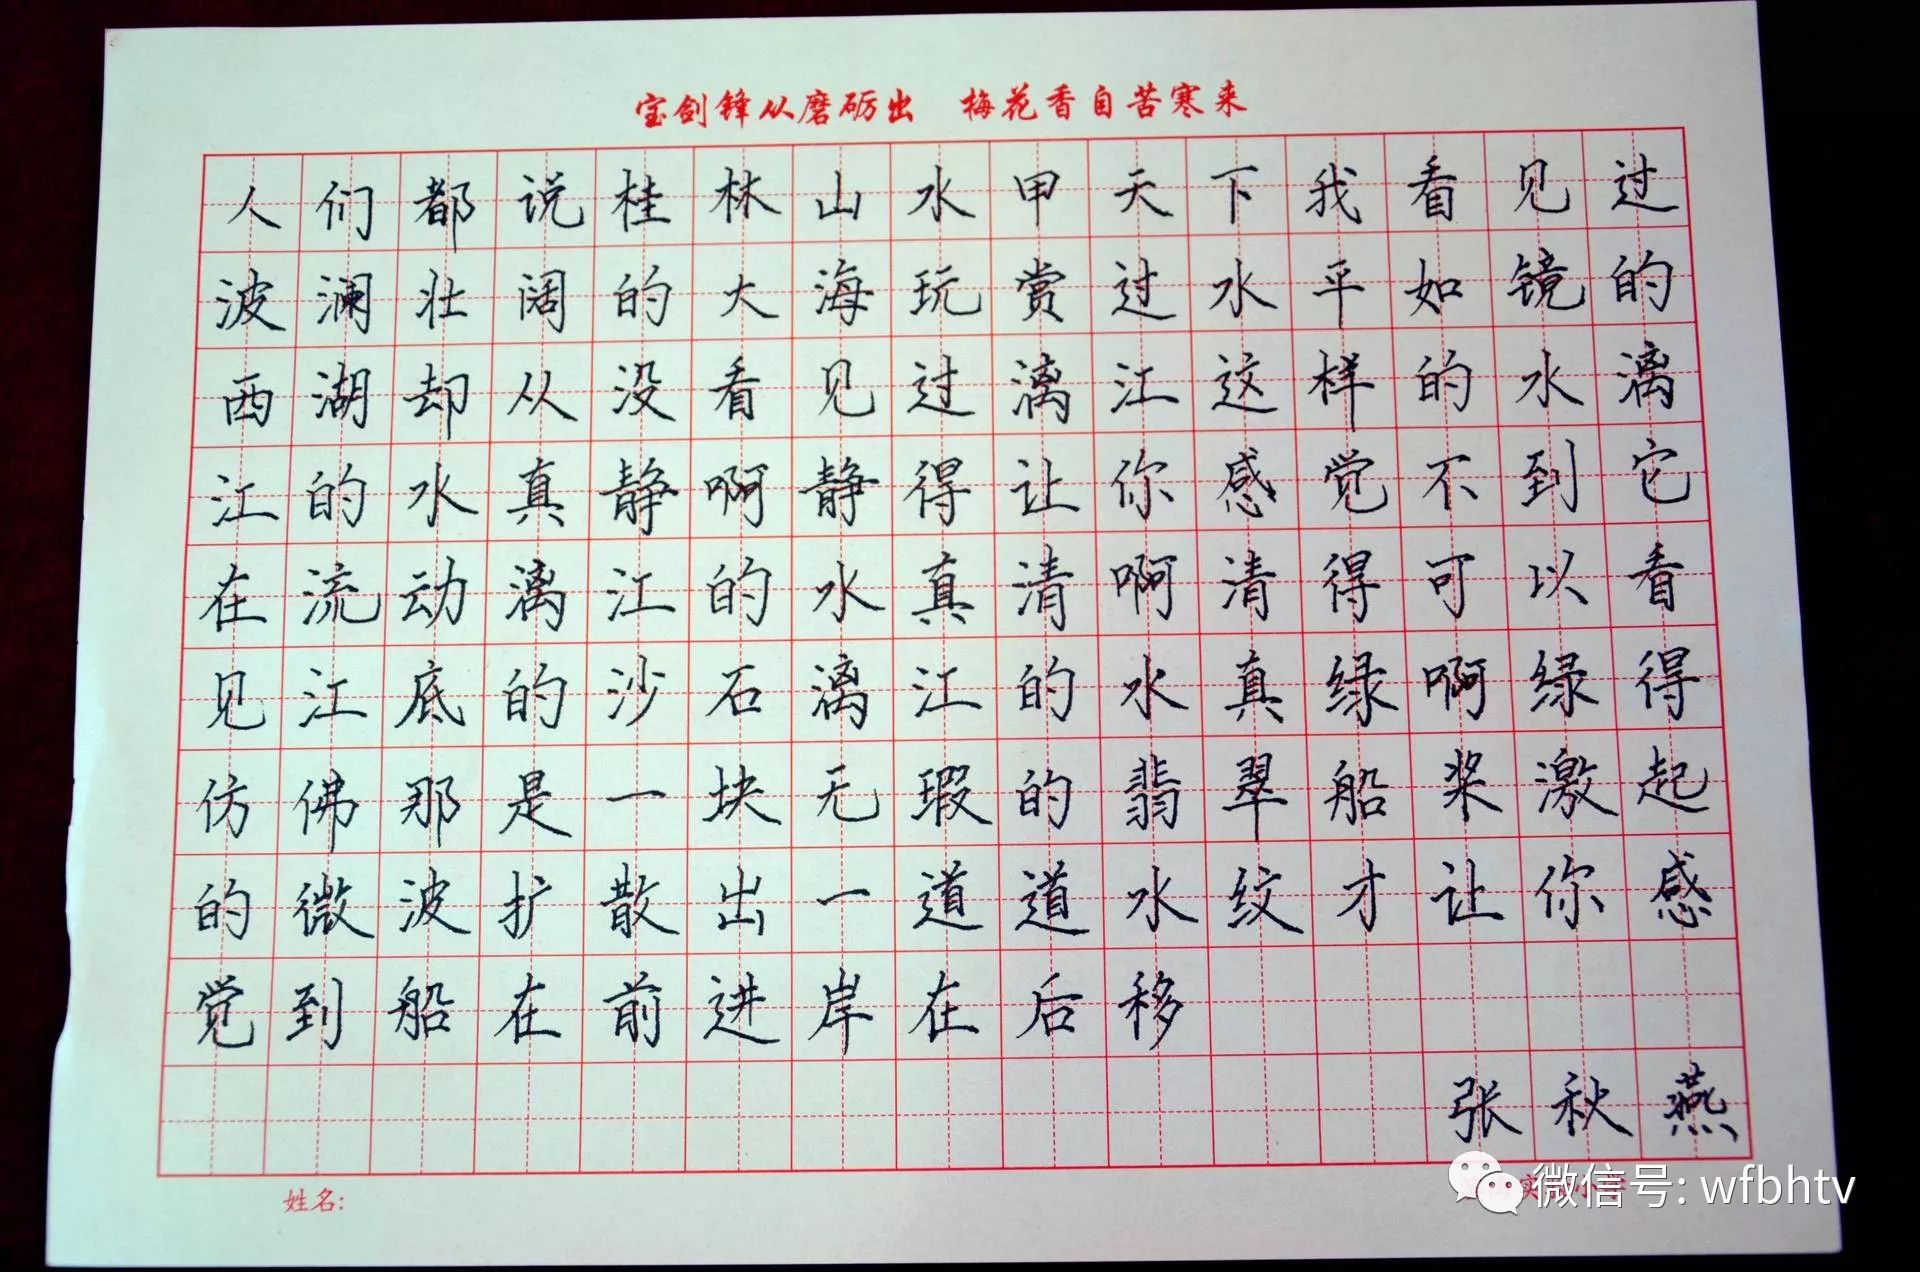 宝剑锋从磨砺出 梅花香自苦寒来
人们都说桂林山水甲天下我看见过
波澜壮阔的大海玩赏过水平如镜的
西湖却从没看见过漓江这样的水漓
江的水真静啊静得让你感觉不到它
在流动漓江的水真清啊清得可以看
见江底的沙石漓江的水真绿啊绿得
仿佛那是一块无瑕的翡翠船桨激起
的微波扩散出一道道水纹才让你感
觉到船在前进岸在后移
张秋燕
姓名:
微信号: wfbhtv